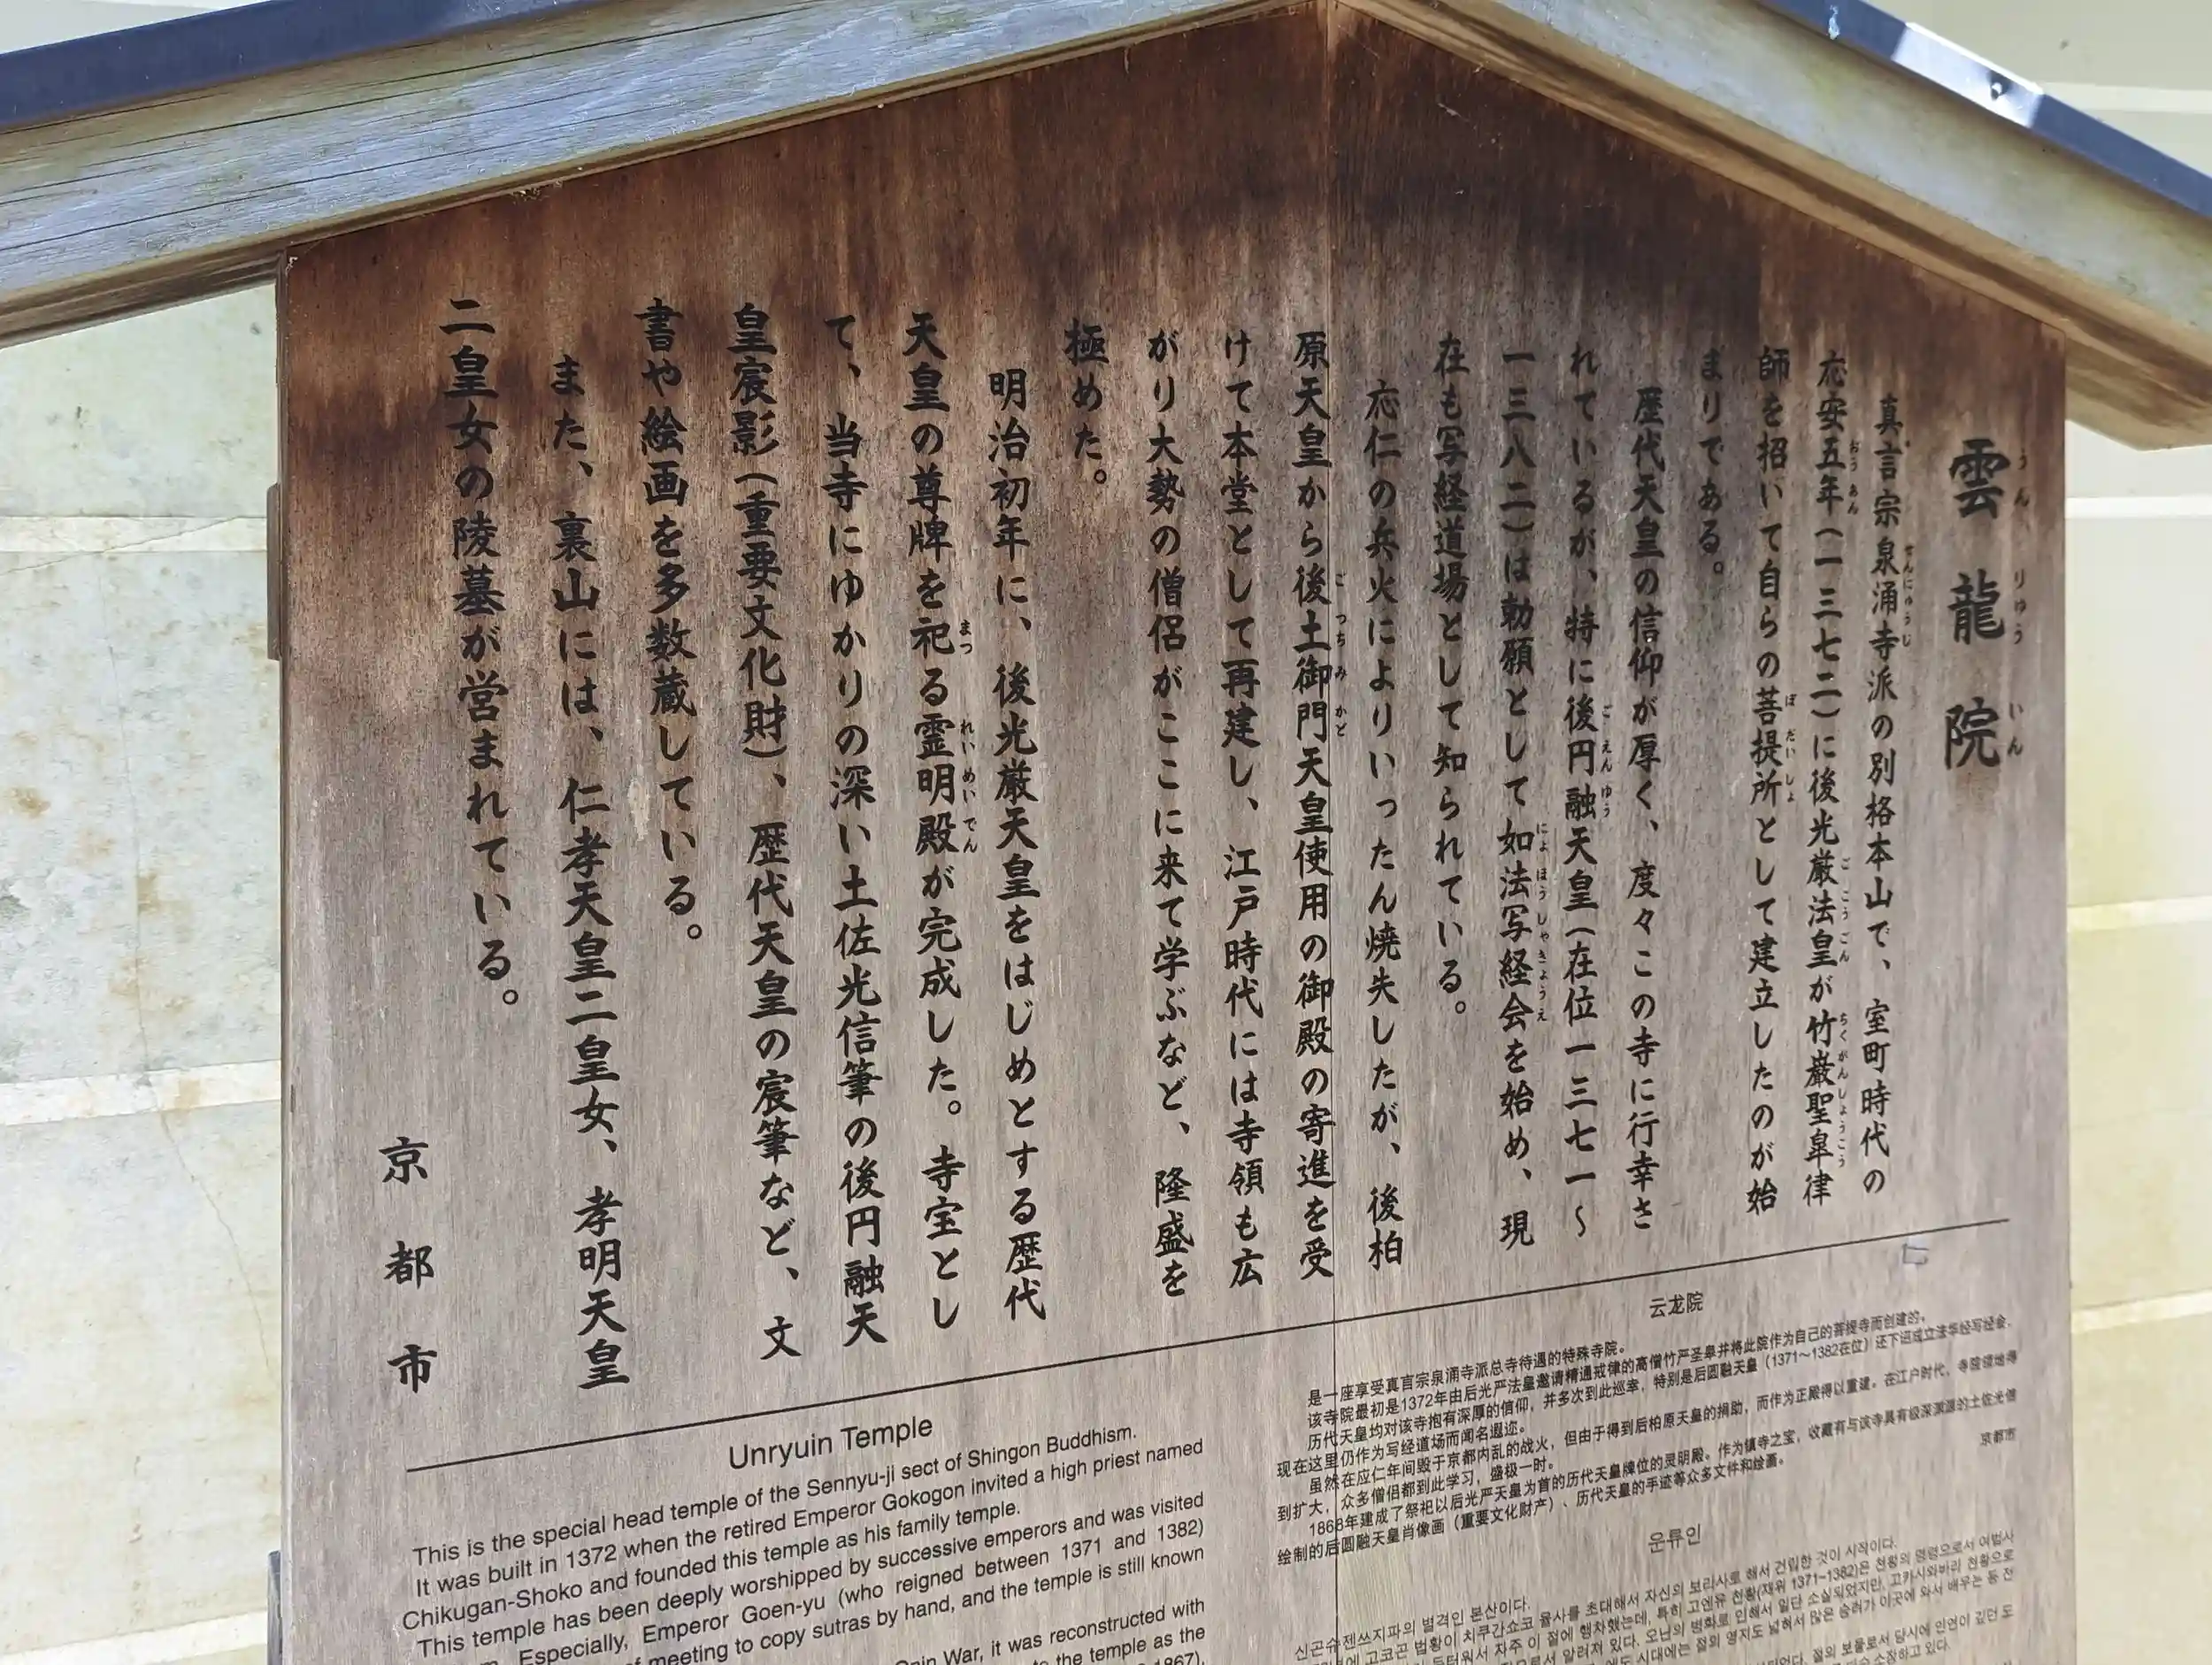 雲龍院
真言宗泉涌寺派の別格本山で、室町時代の
応安五年(一三七二)に後光厳法皇が竹巌聖皐律
師を招いて自らの菩提所として建立したのが始
まりである。
歴代天皇の信仰が厚く、度々この寺に行幸さ
れているが、特に後円融天皇(在位一三七一〜
一三八二)は勅願として如法写経会を始め、現
在も写経道場として知られている。
応仁の兵火によりいったん焼失したが、後柏
原天皇から後土御門天皇使用の御殿の寄進を受
けて本堂として再建し、江戸時代には寺領も広
がり大勢の僧侶がここに来て学ぶなど、隆盛を
極めた。
明治初年に、後光厳天皇をはじめとする歴代
天皇の尊牌を祀る霊明殿が完成した。寺宝とし
て、当寺にゆかりの深い土佐光信筆の後円融天
皇宸影(重要文化財)、歴代天皇の宸筆など、文
書や絵画を多数蔵している。
また、裏山には、仁孝天皇二皇女、孝明天皇
二皇女の陵墓が営まれている。
京都市
Unryuin Temple
This is the special head temple of the Sennyu-ji sect of Shingon Buddhism.
It was built in 1372 when the retired Emperor Gokogon invited a high priest named
Chikugan-Shoko and founded this temple as his family temple.
This temple has been deeply worshipped by successive emperors and was visited
Especially, Emperor Goen-yu (who reigned between 1371 and 1382)
meeting to copy sutras by hand, and the temple is still known
War, it was reconstructed with
the temple as the
1867),
云龙院
是一座享受真言宗泉涌寺派总寺待遇的特殊寺院。
该寺院最初是1372年由后光严法皇邀请精通戒律的高僧竹严圣皋并将此院作为自己的菩提寺而创建的。
历代天皇均对该寺抱有深厚的信仰，并多次到此巡幸，特别是后圆融天皇（1371～1382在位）还下诏成立法华经写经会，
现在这里仍作为写经道场而闻名遐迩。
虽然在应仁年间毁于京都内乱的战火，但由于得到后柏原天皇的捐助，而作为正殿得以重建。在江户时代，寺院领地得
到扩大，众多僧侣都到此学习，盛极一时。
1868年建成了祭祀以后光严天皇为首的历代天皇牌位的灵明殿。作为镇寺之宝，收藏有与该寺具有极深渊源的土佐光信
绘制的后圆融天皇肖像画（重要文化财产）、历代天皇的手迹等众多文件和绘画。
京都市
운류인
신곤슈젠쓰지파의 별격인 본산이다.
고코곤 법황이 치쿠간쇼코 율사를 초대해서 자신의 보리사로 해서 건립한 것이 시작이다.
자주 이 절에 행차했는데, 특히 고엔유 천황(재위 1371~1382)은 천황의 명령으로서 여법사
알려져 있다. 오닌의 병화로 인해서 일단 소실되었지만, 고카시와바라 천황으로
시대에는 절의 영지도 넓혀서 많은 승려가 이곳에 와서 배우는 등 전
절의 보물로서 당시에 인연이 깊던 도
소장하고 있다.